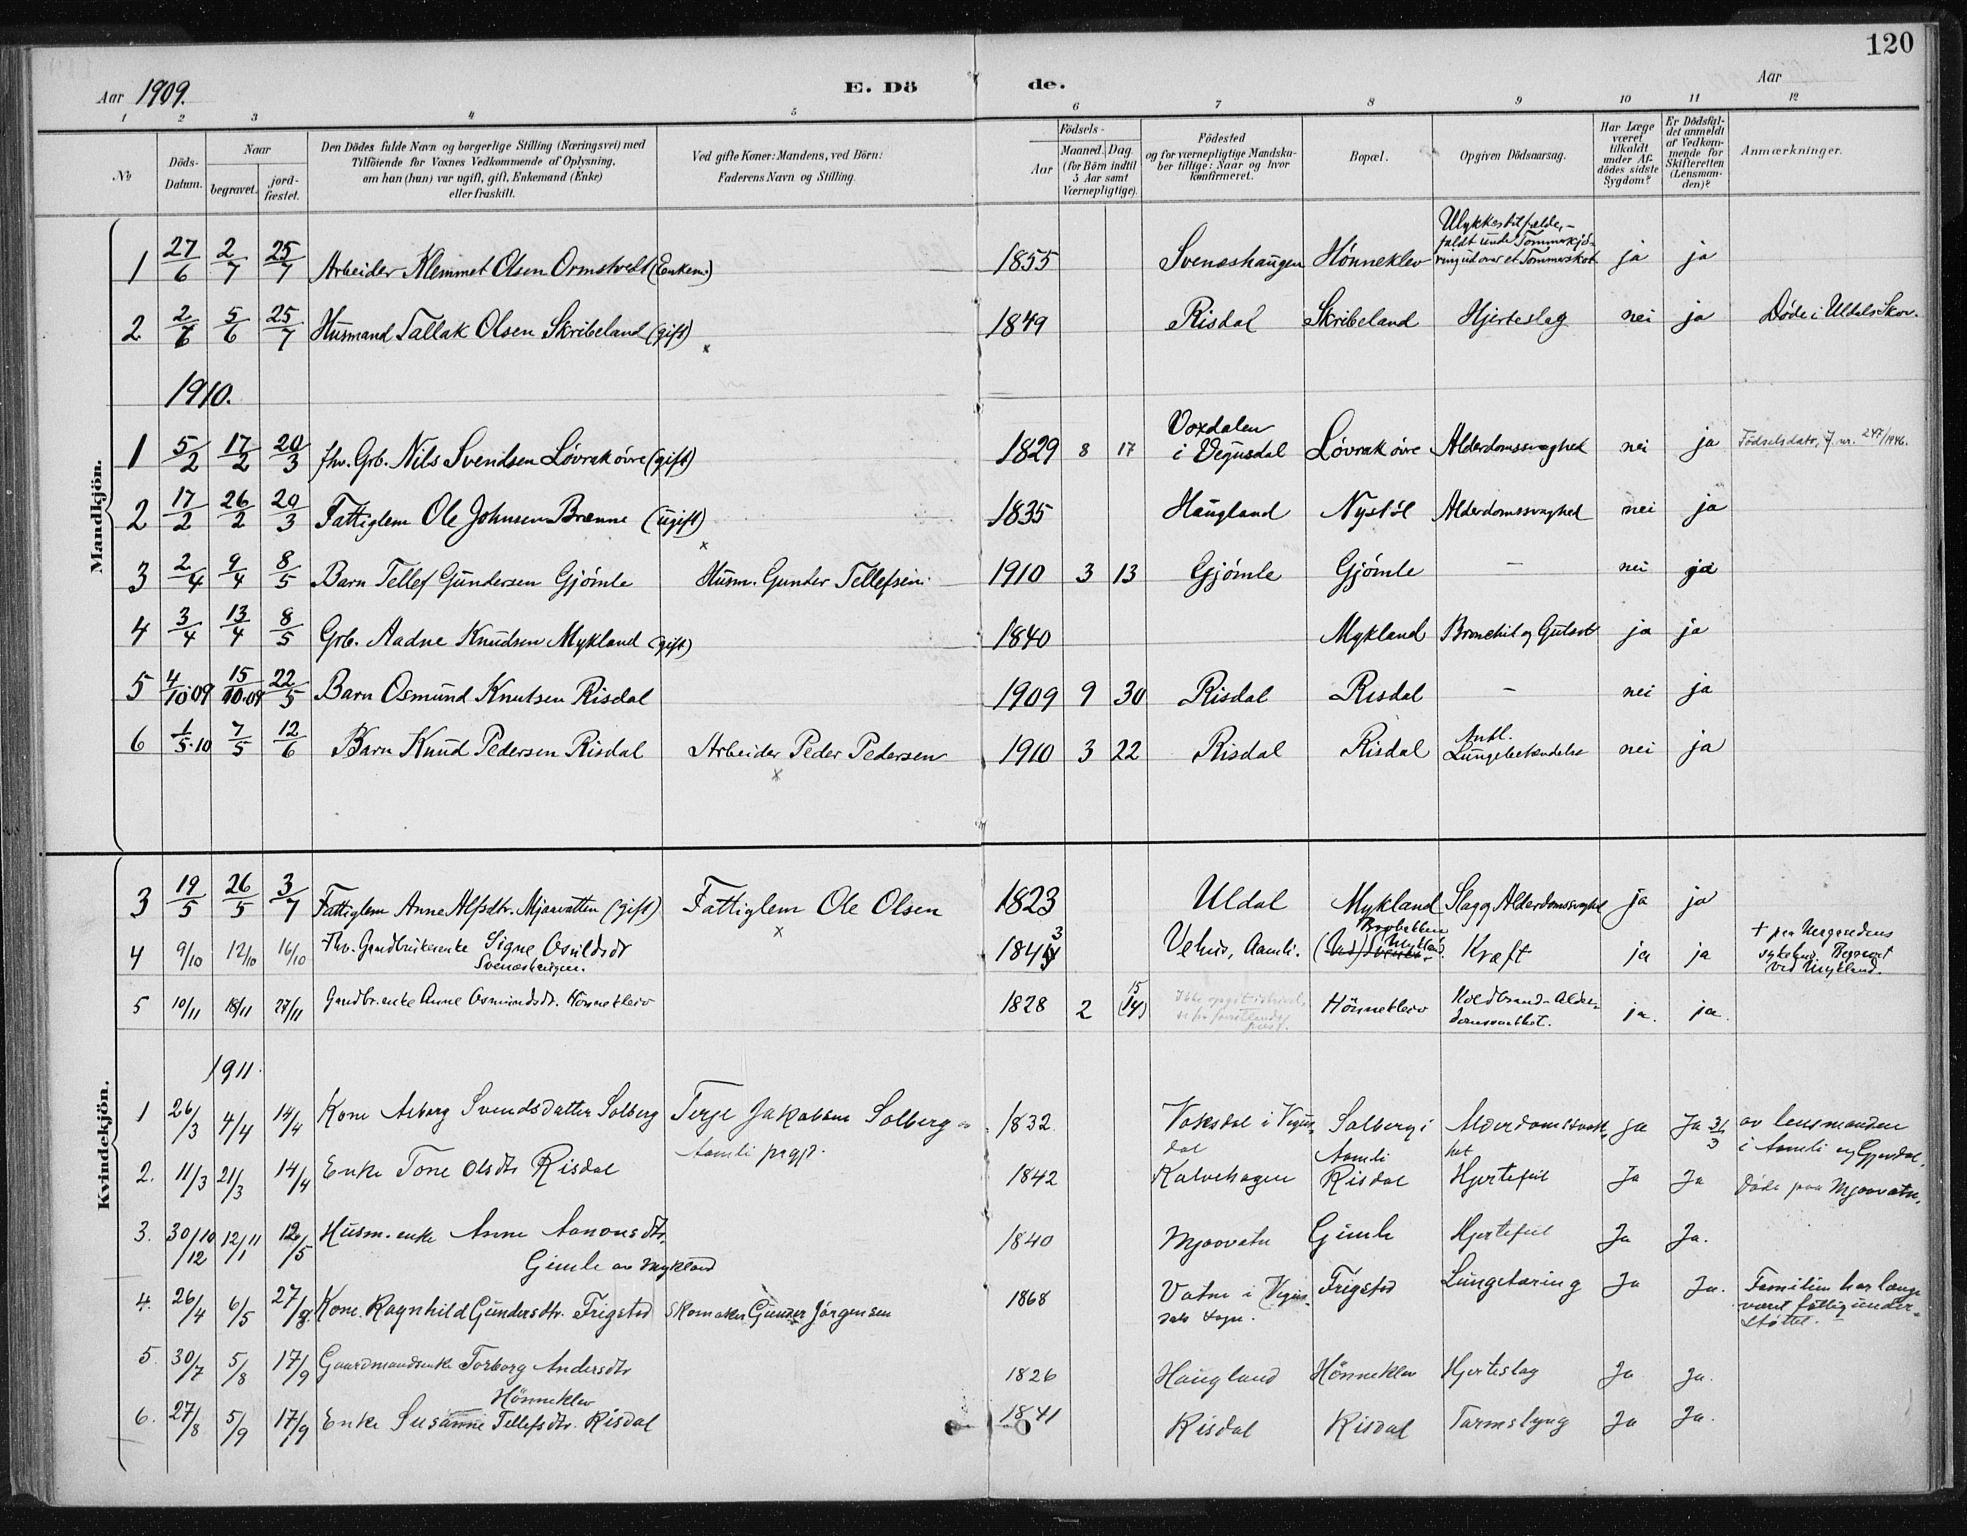 120
Aar 1909. E. Dö de. Aar
1 2 3 4 5 6 7 8 9 10 11 12
No
Döds-Datum.
Naar
begravet.
jord-fæstet.
Den Dödes fulde Navn og borgerlige Stilling (Næringsvei) med
Tilföiende for Voxnes Vedkommende af Oplysning,
om han (hun) var ugift, gift, Enkemand (Enke)
eller fraskilt.
Ved gifte Koner: Mandens, ved Börn:
Faderens Navn og Stilling.
Födsels-
Aar
Maaned. Dag.
(for Börn indtil
5 Aar samt
Værnepligtige).
Födested
og for værnepligtige Mandska-
ber tillige: Naar og hvor
konfirmeret.
Bopæl.
Opgiven Dödsaarsag.
Har Læge
været
tilkaldt
under Af-
dödes sidste
Sygdom?
Er Dödsfal-
det anmeldt
af Vedkom-
mende for
Skifteretten
(Lensman-
den)?
Anmærkninger.
Mandkjön.
1 27/6 2/7 25/7 Arbeider Klemmet Olsen Ormstvedt (Enkem.) 1855 Svenæshaugen Hønneklev Ulykkestilfælde,- faldt under Tømmerkjö-ring ud over et ja ja
2 2/6 5/6 25/7 Husmand Tallak Olsen Skribeland (gift) x 1849 Risdal Skribeland Hjerteslag nei ja Døde i Uldals Skov.
1910.
1 5/2 17/2 20/3 fhv. Grb. Nils Svendsen Løvrak øvre (gift) 1829 8 17 Voxdalen i Vegusdal Løvrak øvre Alderdomssvaghed nei ja Födselsdato, J. nr. 247/1946.
2 17/2 26/2 20/3 Fattiglem Ole Johnsen Brænne (ugift) x 1835 Haugland Nystöl Alderdomssvaghed nei ja
3 2/4 9/4 8/5 Barn Tellef Gundersen Gjömle Husm. Gunder Tellefsen. 1910 3 13 Gjömle Gjömle - nei ja
4 3/4 13/4 8/5 Grb. Aadne Knudsen Mykland (gift) 1840 Mykland Bronchit og ja ja
5 4/10·09 15/10·09 22/5 Barn Osmund Knutsen Risdal 1909 9 30 Risdal Risdal - nei ja
6 1/5·10 7/5 12/6 Barn Knud Pedersen Risdal Arbeider Peder Pedersen x 1910 3 22 Risdal Risdal Antl. Lungebetændelse nei ja
Kvindekjön.
3 19/5 26/5 3/7 Fattiglem Anne Alfsdtr. Mjaavatten (gift) Fattiglem Ole Olsen x 1823 Uldal Mykland Slag og Alderdomssvaghed ja ja
4 9/10 12/10 16/10 Fhv. Gardbrukerenke Signe Osuldsdt Svenæshaugen. 1843 Vehus, Aamli. Mykland Kræft ja ja + paa Arendens sykehus. Begravet ved Mykland.
5 10/11 18/11 27/11 Gardbr.enke Anne Osmundsdt. Hönneklev 1828 2 15 (14) Hönneklev Koldbrand - Alder-domssvakhet. ja. ja.
1911.
1 26/3 4/4 14/4 Kone Asborg Svendsdatter Solberg Terje Jakobsen Solberg Aamli prgjd. 1832. Voksdal i Vegus-dal Solberg i Aamli Alderdomssvak-het ja Ja 31/3 av lensmanden i Aamli og Gjøvdal.
2. 11/3 21/3 14/4 Enke Tone Olsdtr Risdal 1842 Kalvehagen Risdal Hjertefeil Ja Ja Døde paa Mjaavatn.
3. 30/12 10 12/1 11 12/5 Husm.enke Anne Aanonsdtr. Gimle av Mykland 1840 Mjaavatn Gimle Hjertefeil Ja Ja.
4. 26/4 6/5 27/8. Kone Ragnhild Gundersdtr. Frigstad Skomaker Gunder Jörgensen 1868 Vatne i Vegus-dals sogn. Frigstad Lungetæring Ja Ja. Familien har længe været fattigunder-støttet.
5. 30/7 5/8 17/9 Gaardmandsenke Torborg Andersdtr Hönneklev 1826 Haugland Hönneklev Hjerteslag Ja Ja.
6. 27/8 5/9 17/9 Enke Susanne Tellefsdtr. Risdal 1841 Risdal Risdal Tarmslyng Ja Ja.